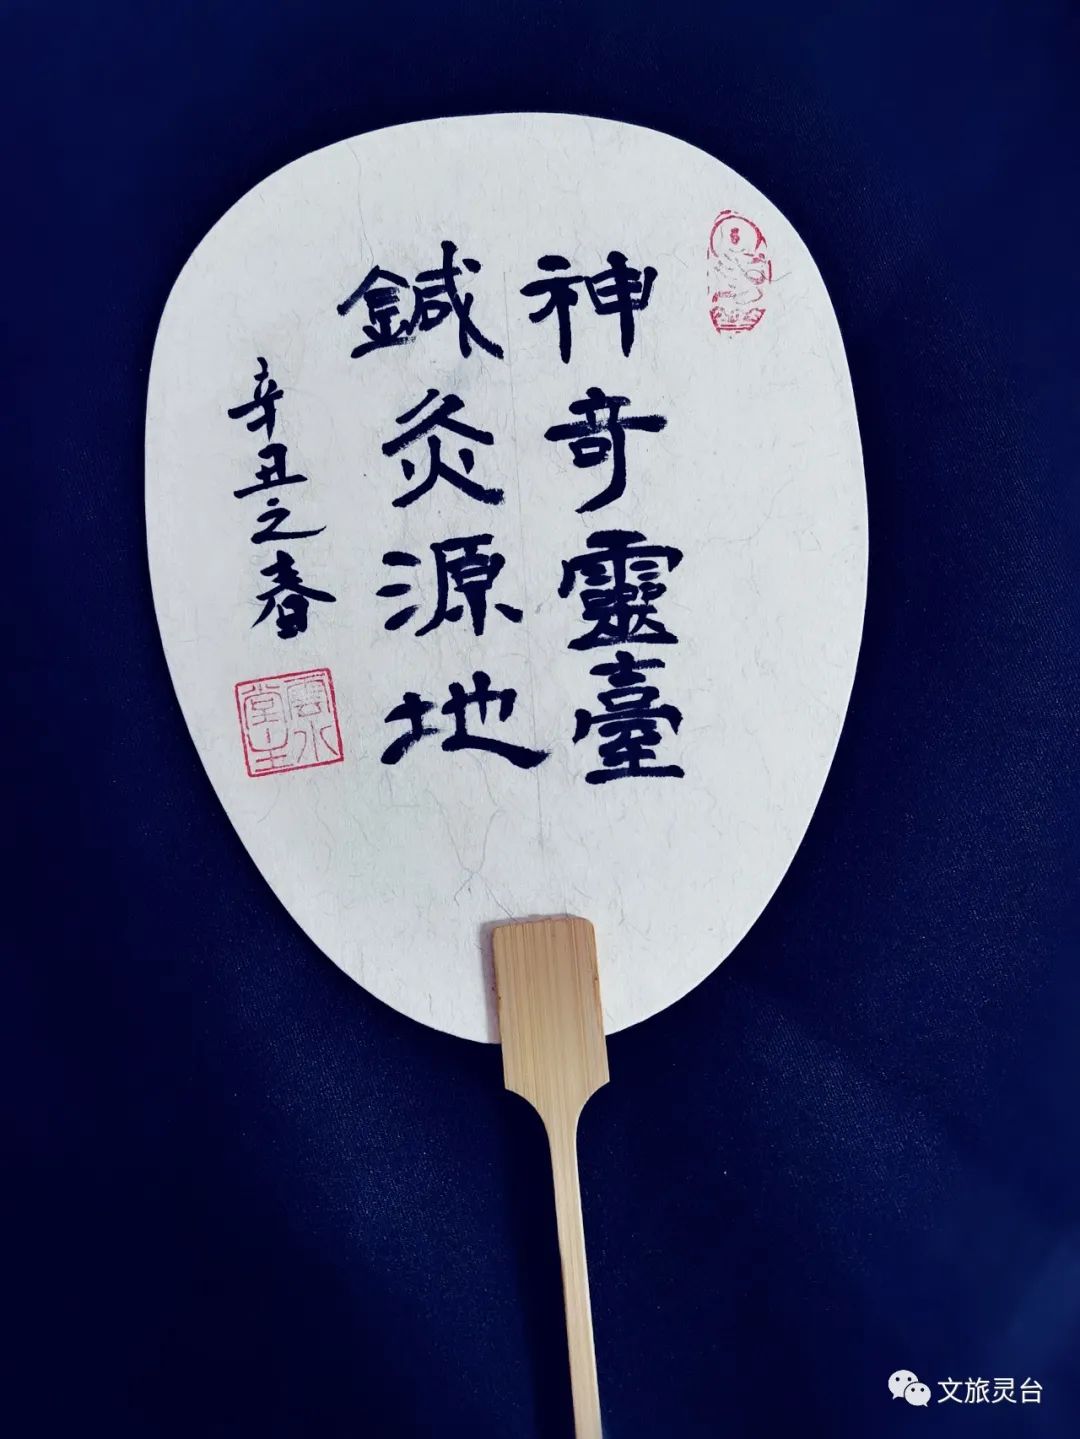 神奇靈臺
鍼灸源地
辛丑之春
雲水堂主
文旅灵台